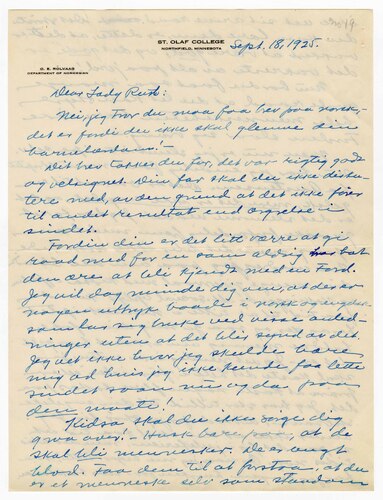 ST. OLAF COLLEGE
NORTHFIELD, MINNESOTA
Sept. 18, 1925.
O. E. ROLVAAG
DEPARTMENT OF NORWEGIAN
Dear Lady Ruth:
Nei, jeg tror du maa faa brev paa norsk,
det er fordi du ikke skal glemme din
barnelærdom!—
Dit brev takker du for, det var rigtig godt
og velsignet. Din far skal du ikke disku-
tere med, av den grund at det ikke fører
til andet resultat end ærgrelse i
sindet.
Fordin din er det litt værre at gi
raad med for en som aldrig har hat
den ære at bli kjendt med en Ford.
Jeg vil dog minde dig om, at der er
nogen uttryk baade i norsk og engelsk
som lar sig bruke ved visse anled-
ninger uten at det blir synd av det.
Jeg vet ikke hvor jeg skulde bære
mig ad hvis jeg ikke kunde faa lette
sindet som nu og da paa
den maate!
Kidsa skal du ikke sørge dig
graa over! — Husk bare paa, at de
skal bli mennesker. De er ungt
blod. Faa dem til at forstaa, at du
er et menneske selv som